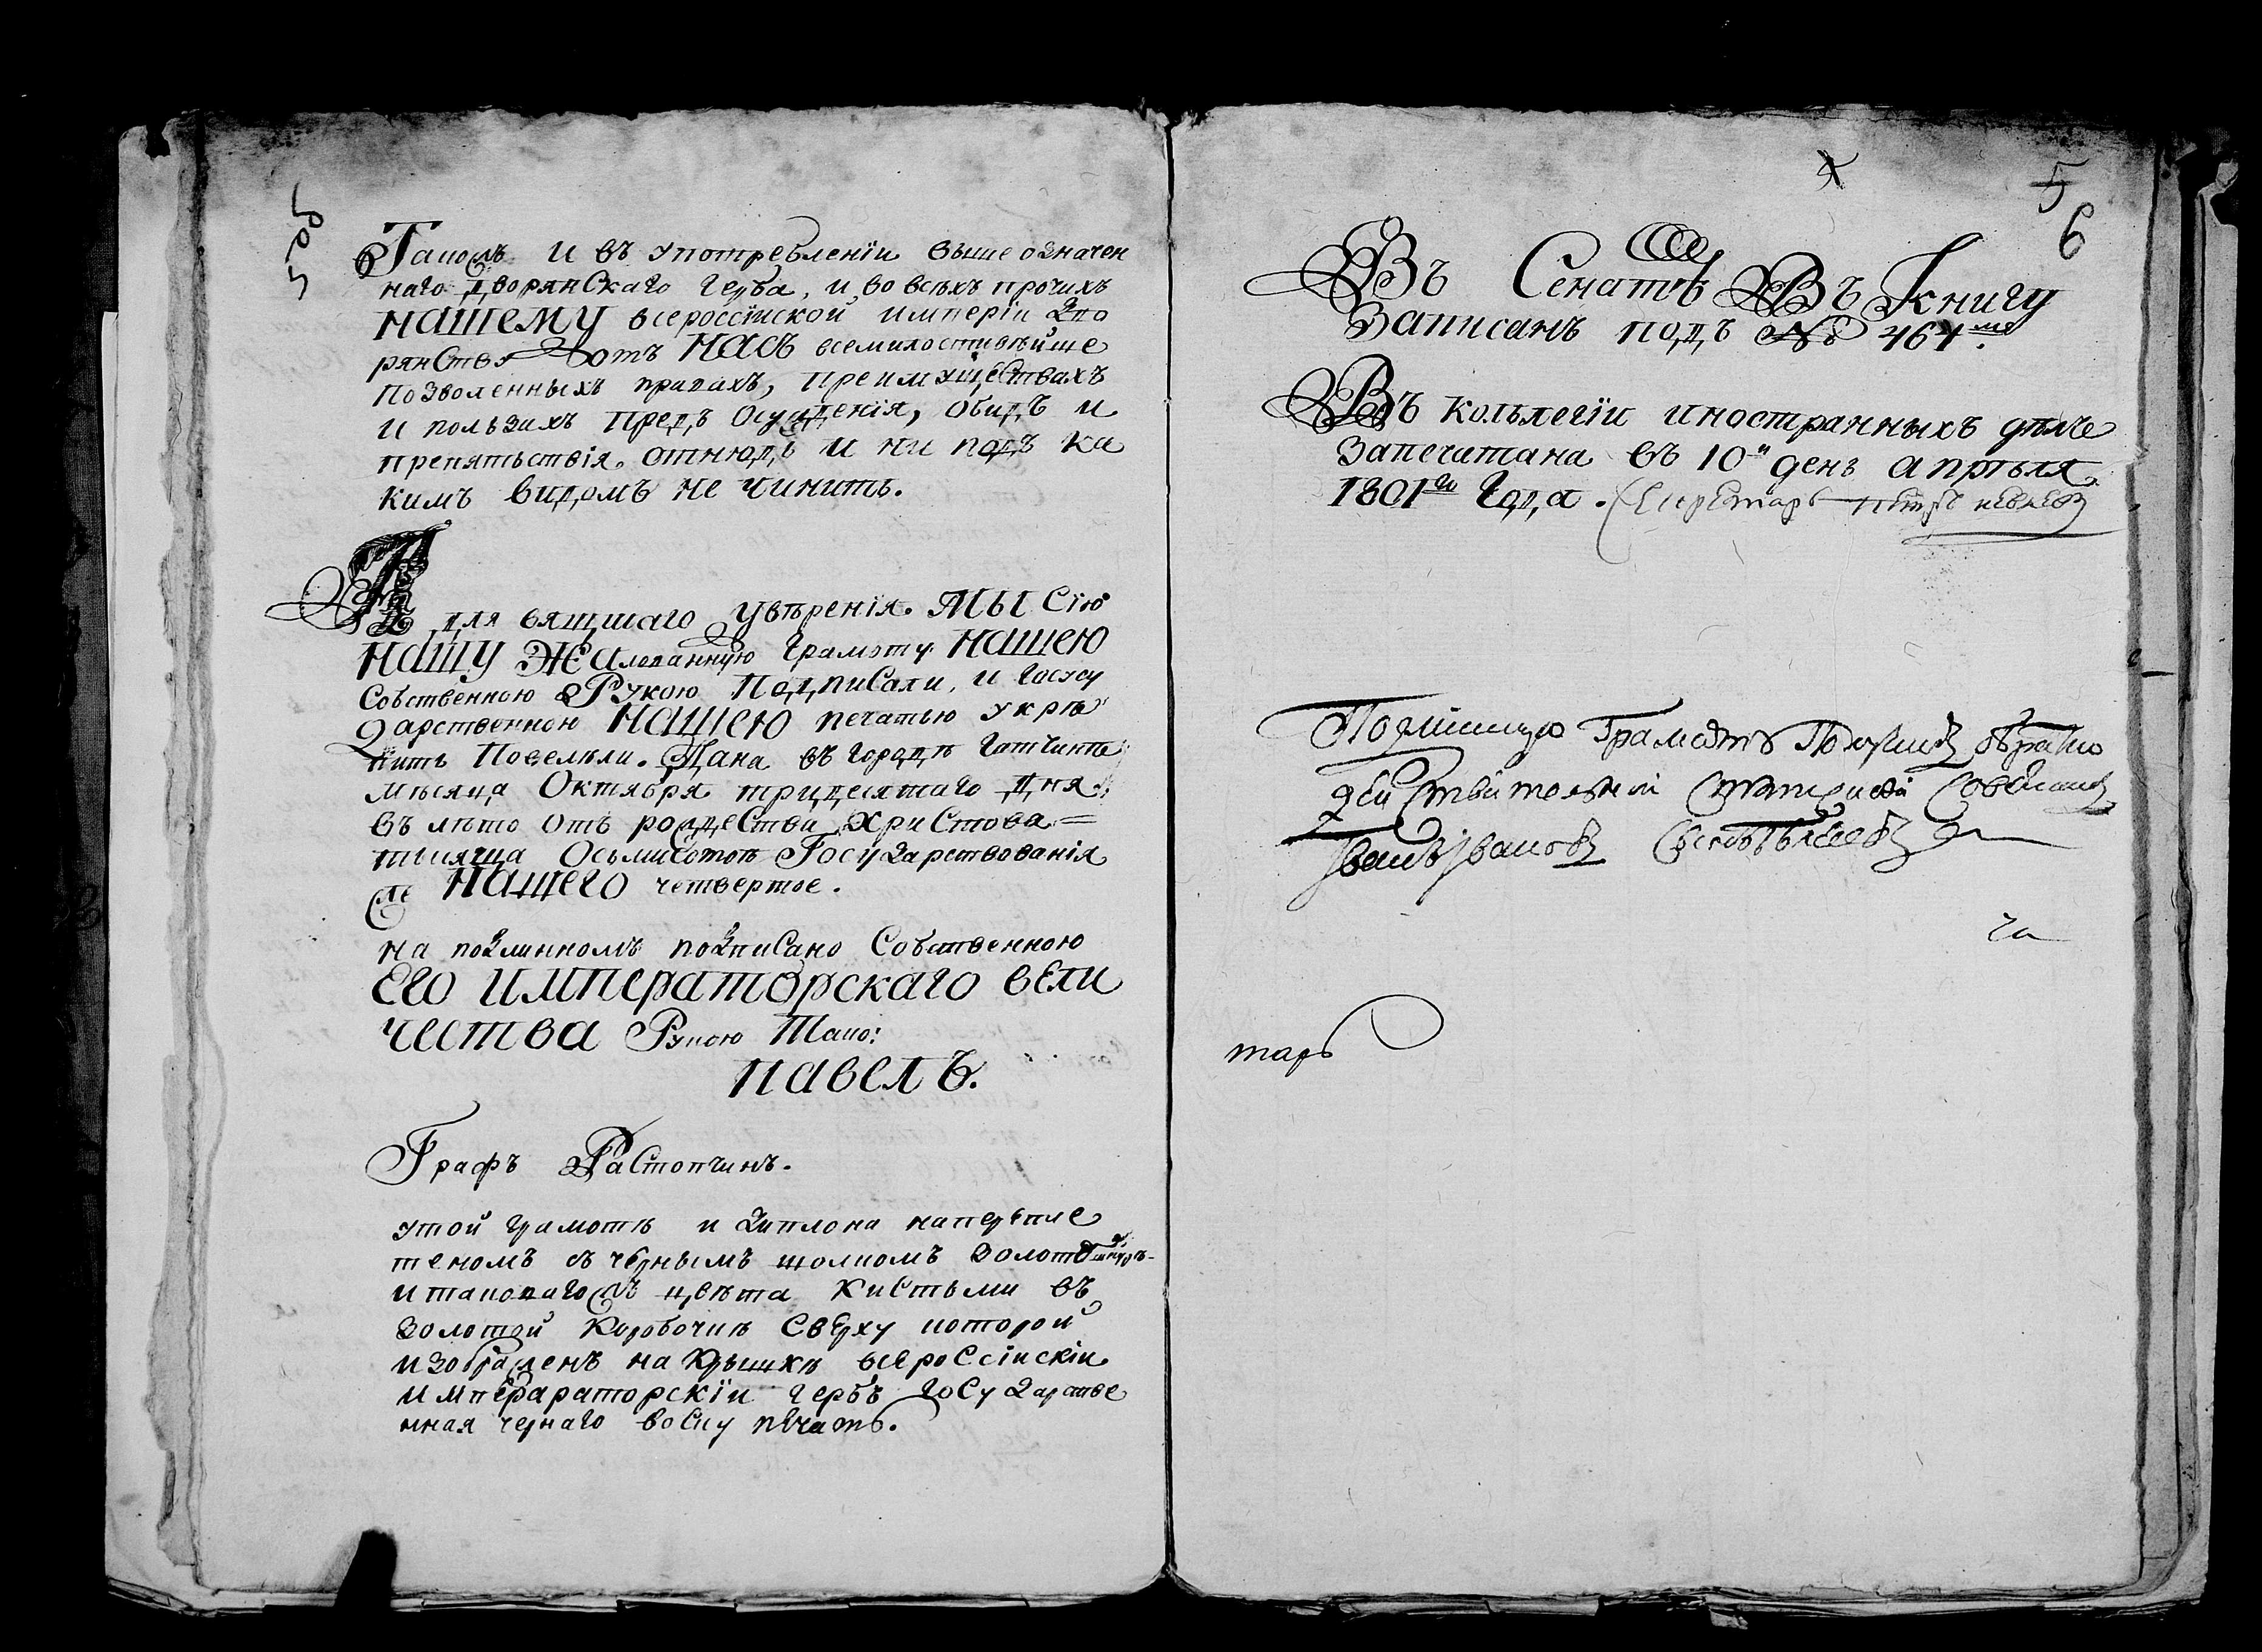 Такожъ и въ употребленіи выше означен
наго дворянскаго герба, и во всѣхъ прочихъ
НАШЕМУ всероссійской имперіи дво
рянству отъ НАСЪ всемилостивѣйше
позволенныхъ правахъ, преимуществахъ
и пользахъ предъ осужденія, обидъ и
препятьствія. отнюдь и ни подъ ка
кимъ видомъ не чинить.
для вящшаго увѣренія. МЫ сію
НАШУ Жалованную грамоту НАШЕЮ
собственною Рукою Подписали, и госу
дарственною НАШЕЮ печатью укрѣ
пить Повелѣли. Дана въ городѣ Гатчинѣ
мѣсяца Октября тридесятаго дня
въ лѣто отъ рождества Христова=
тысяща Осьмисотое Государствованія
же НАШЕГО четвертое.
на подлинномъ подписано Собственною
ЕГО ИМПЕРАТОРСКАГО ВЕЛИ
ЧЕСТВА Рукою Тако:
ПАВЕЛЪ.
Графъ Растопчинъ.
утой грамотѣ и диплона наперепле
теномъ съ чернымъ шолкомъ золотѣ
и таковагожъ цвѣта кистьми въ
золотой коробочкѣ сверху которой
изображенъ на крышкѣ всероссійскіи
имперараторскіи гербъ государстве
нная чернаго воску печать.
5
6
Въ Сенатѣ Въ Книгу
Записанъ подъ № 464мъ.
Въ кольлегіи иностранныхъ дѣлъ
Запечатана въ 10й день апрѣля
1801го года. Секретарь
Подлинную Грамоту Получилъ обратно
Действительной Статской Советникъ
Иванъ Ивановъ
тарь